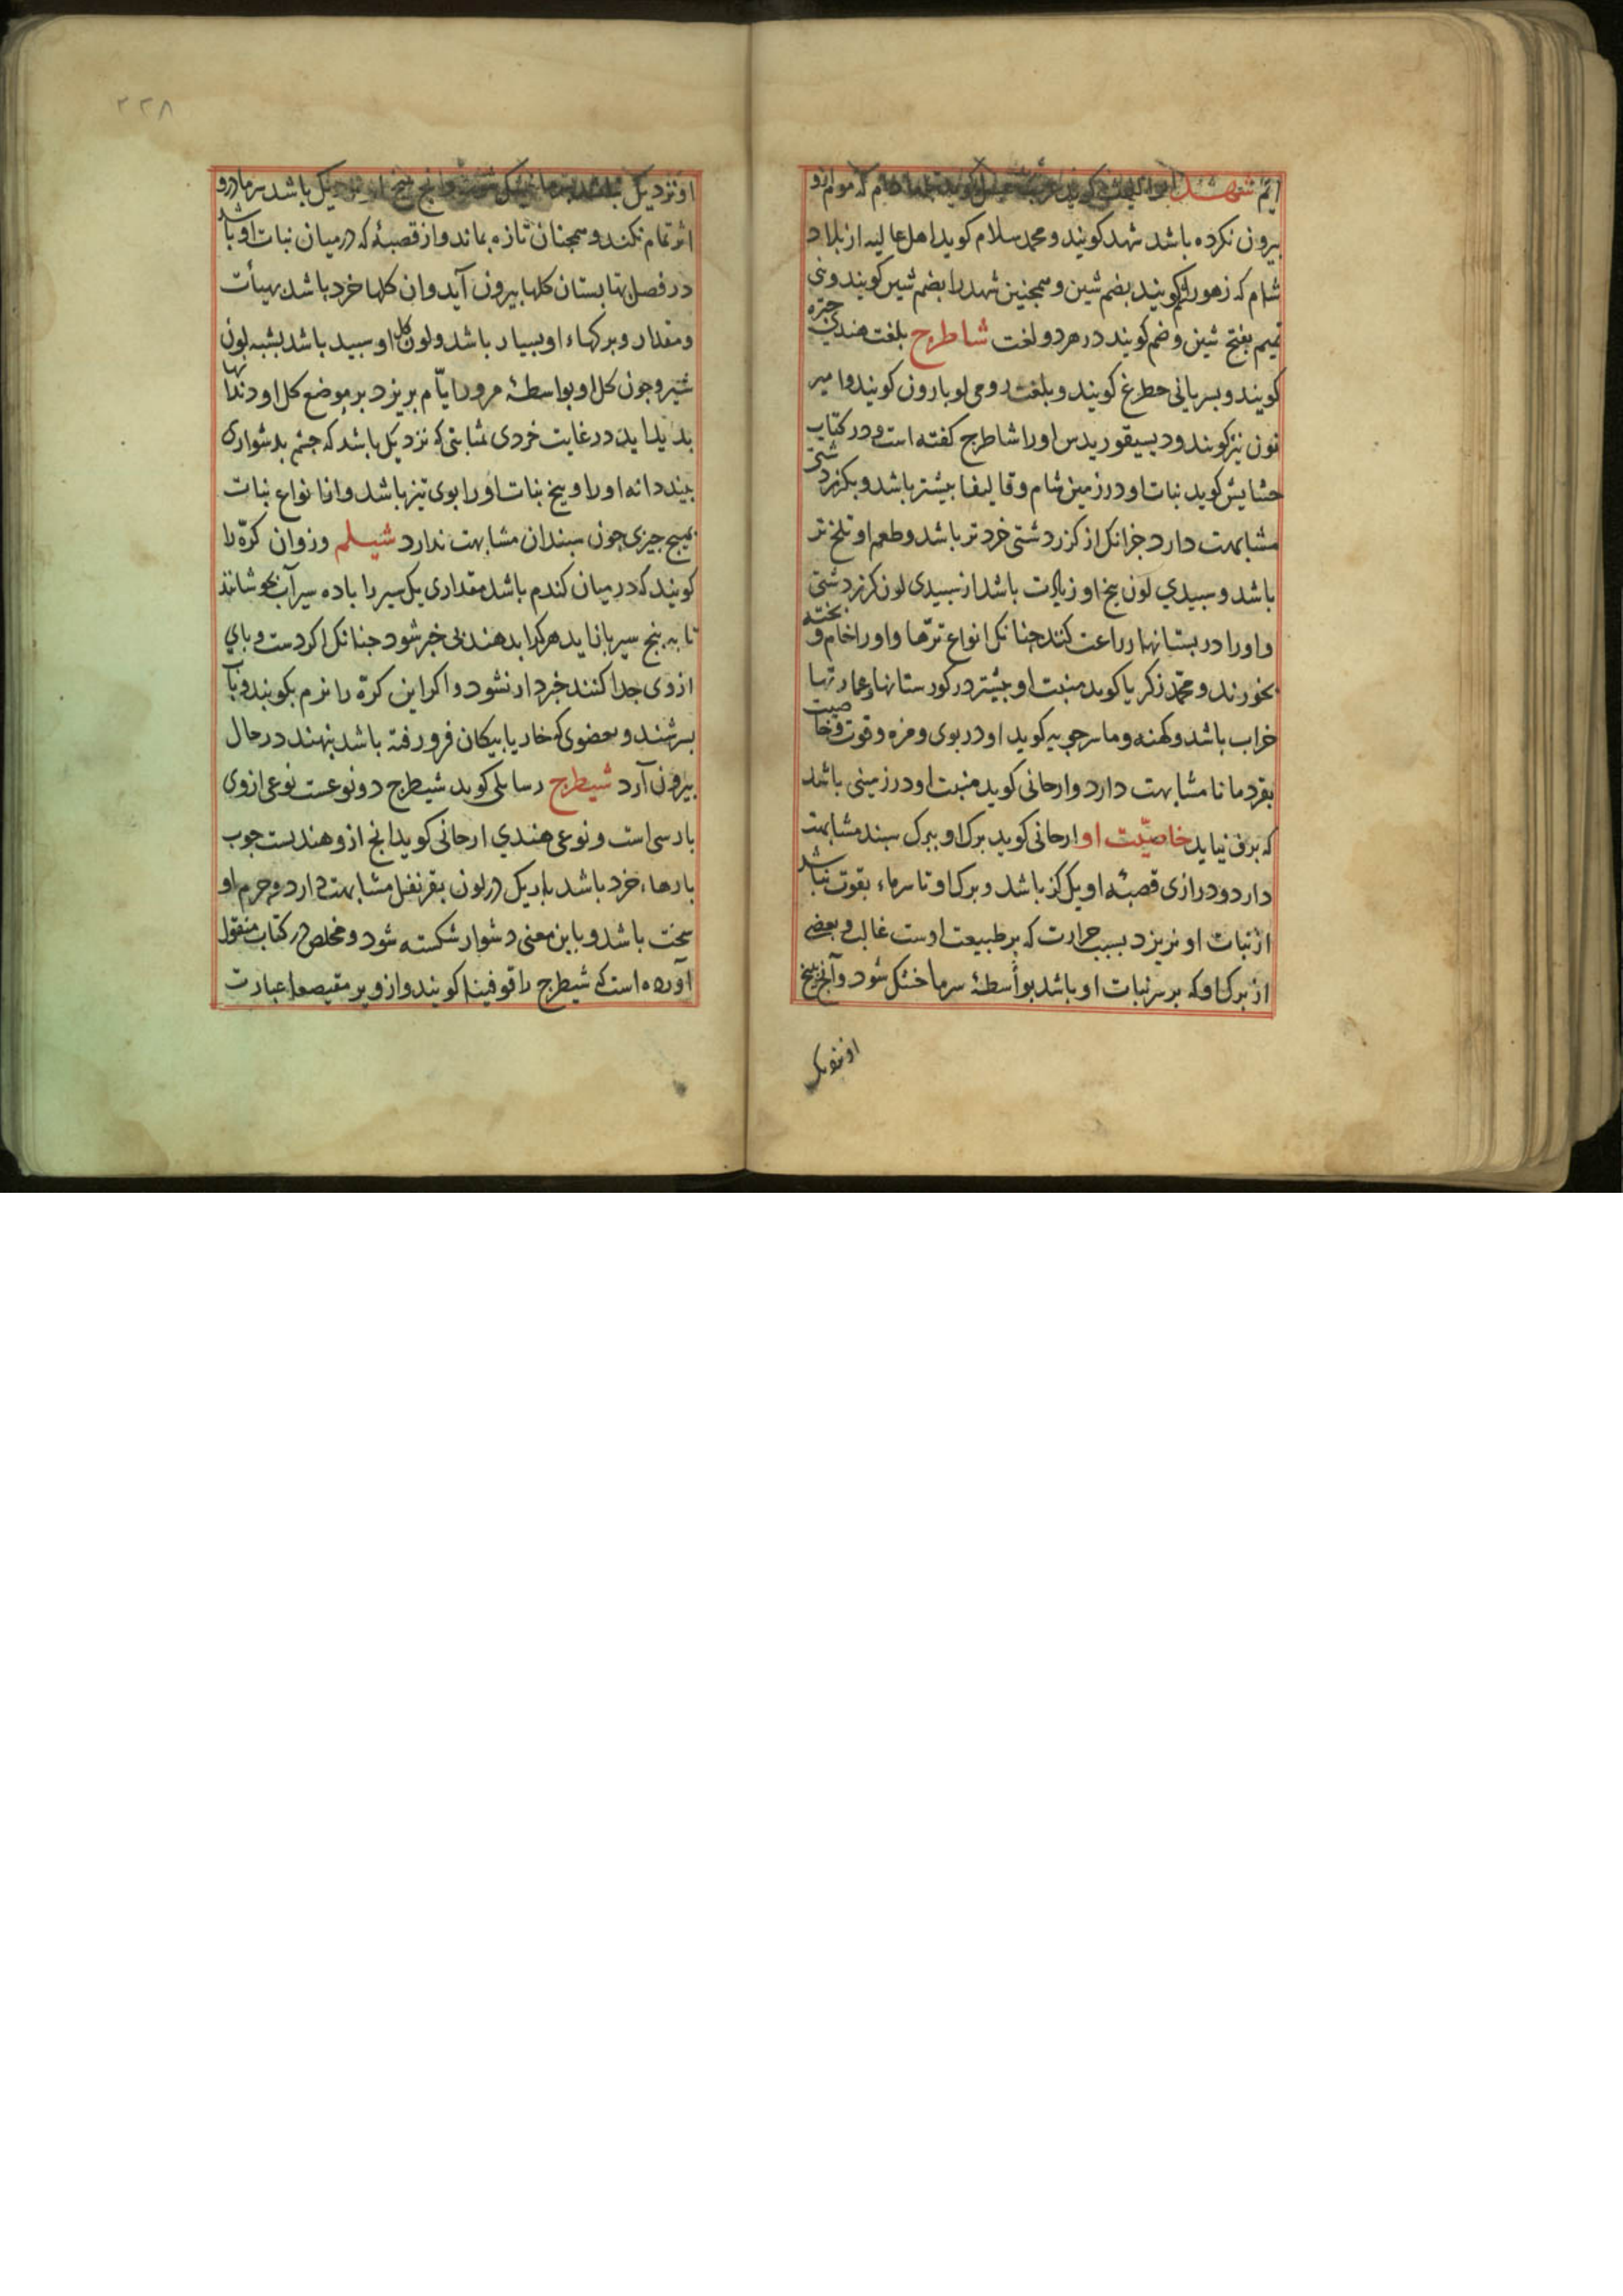 اثم شهد ابو که موم ازو
بیرون نکرده باشد شهد کویند و محمد سلام کوید اهل عالیه از بلاد
شام که زهورا کویند بضم شین و همجنین شهد را بضم شین کویند و بنی
تمیم بفتح شین و ضم کویند در هر دو لغت شاطرج بلغت هندی جتره
کویند و بسریانی حطرغ کویند و بلغت رومی لوبارون کویند و امیر
نون نیز کویند و دیسیقوریدس اورا شاطرج کفته است و در کتاب
حشایش کوید نبات او در زمین شام و قالیقا بیشتر باشد و بکزر دشتی
مشابهت دارد جزانک از کزر دشتی خردتر باشد و طعم او تلخ تر
باشد و سبیدی لون بیخ او زیادت باشد از سبیدی لون کزر دشتی
و اورا در بستانها زراعت کنند جنانک انواع ترها و اورا خام و بخته
بخورند و محمد زکریا کوید منبت او بیشتر در کورستانها و عمارتها
خراب باشد و کهنه و ماسرجویه کوید او در بوی و مزه و قوت و خاصیت
بقردمانا مشابهت دارد و ارحانی کوید منبت او در زمینی باشد
که برف نیاید خاصیت او ارحانی کوید برک او ببرک سبند مشابهت
دارد و درازی قصبه او یک کز باشد و برک او تا سرماء بقوت نباشد
از نبات او نریزد بسبب حرارت که بر طبیعت اوست غالب و بعضی
از برک او که بر سر نبات او باشد بواسطه سرما خشک شود و آنج بیخ
او نزدیک
۲۲۸
او نزدیک باشد سرما درو
اثر تمام نکند و همجنان تازه بماند و از قصبه که در میان نبات او باشد
در فصل تابستان کلها بیرون آید و ان کلها خرد باشد بهیأت
و مقدار و برکهاء او بسیار باشد و لون کل او سبید باشد بشبه لون
شیر و جون کل او بواسطه مرور ایام بریزد بر موضع کل او دندانها
بدید اید در غایت خردی بمثابتی که نزدیک باشد که جشم بدشواری
بیند دانه او را و بیخ نبات او را بوی تیز باشد و از انواع نبات
بهیج جیزی جون سبندان مشابهت ندارد شیلم و زوان کره را
کویند که در میان کندم باشد مقداری یک سیر را با ده سیر آب بجوشانند
تا به بنج سیر باز اید هر کرا بدهند بی خبر شود جنانک اکر دست و بای
از وی جدا کنند خبردار نشود و اکر این کره را نرم بکویند و بآب
بسرشند و بعضوی که خار یا بیکان فرو رفته باشد بنهند در حال
بیرون آرد شیطرج رسایلی کوید شیطرج دو نوعست نوعی ازوی
بارسی است و نوعی هندی ارحانی کوید انج ازو هندیست جوب
بارهاء خرد باشد باریک در لون بقرنفل مشابهت دارد و جرم او
سخت باشد و باین معنی دشوار شکسته شود و مخلص در کتاب منقول
آورده است که شیطرج را قوفینا کویند و ازو بر مقیصعا عبارت